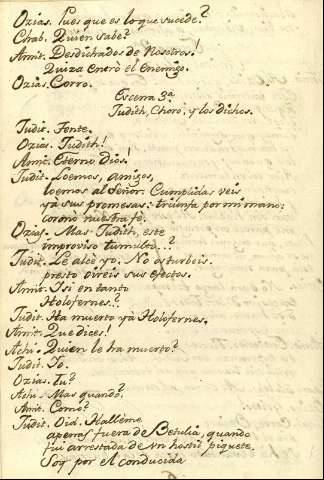 Ozias. Pues que es lo que sucede?
Chab. Quién sabe?
Amit. Desdichados de Nosotros!
Quiza entrò el enemigo.
Ozias. Corro.
Escena 3ª
Judith, Choro, y los dichos.
Judit. Tente.
Ozias. Judith!
Amit. Eterno Dios!
Judit. Loemos, amigos,
loemos al Señor. Cumplidas veis
yà sus promesas: triunfa por mi mano:
coronò nuestra fè.
Ozias. Mas Judith, este
improviso tumulto..?
Judit. Le alcè yo. No os turbeis.
presto vireis sus efectos.
Amit. I si en tanto
Holofernes..?
Judit. Ha muerto yà Holofernes.
Amit. Que dices!
Achi. Quien le ha muerto?
Judit. Yo.
Ozias. Tu?
Achi. Mas quando?
Amit. Como?
Judit. Oid. Hallème
apenas fuera de Betulia, quando
fui arrestada de vn hostil piquete.
Soy por el conducida